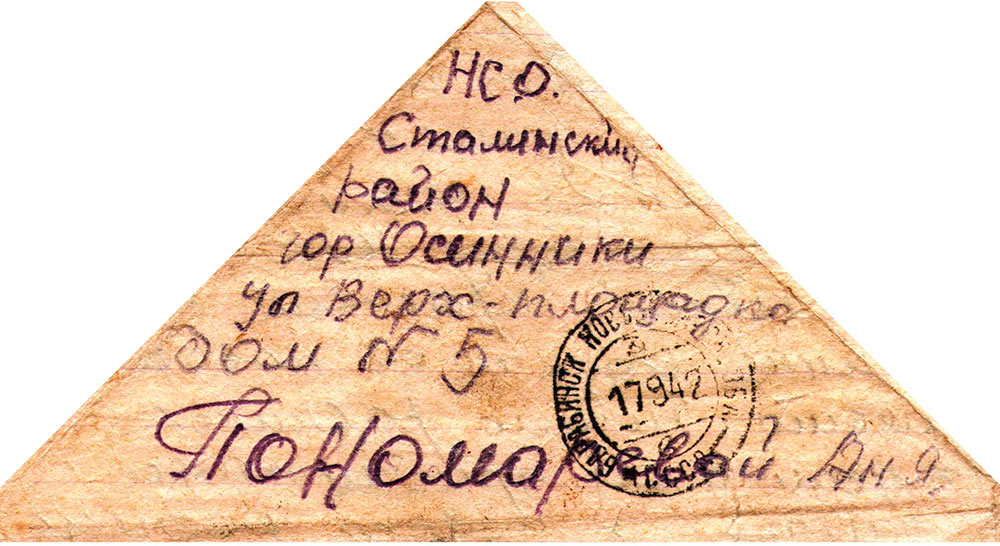 НСО.
Сталинский
район
гор Осинники
ул Верх-площадка
дом N 5
Пономаревой Аня
17942